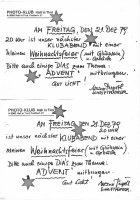 PHOTO-KLUB Hall in Tirol
Am FREITAG, den 21. DEZ 79
20 Uhr ist unser nächster KLUBABEND mit einer
kleinen Weihnachtsfeier (mit Glühwein
Bitte auch einige DIAS zum Thema:
ADVENT mitbringen.
Gut Licht
PHOTO-KLUB Hall in Tirol
Am FREITAG, den 21. DEZ 79
20 Uhr ist unser nächster KLUBABEND mit einer
kleinen Weihnachtsfeier (mit Glühwein
Bitte auch einige DIAS zum Thema:
ADVENT mitbringen.
Gut Licht